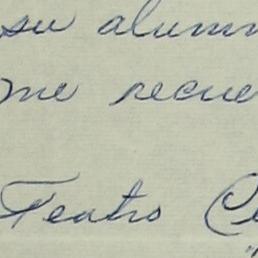 su alumn
me recue
Teatro Ce